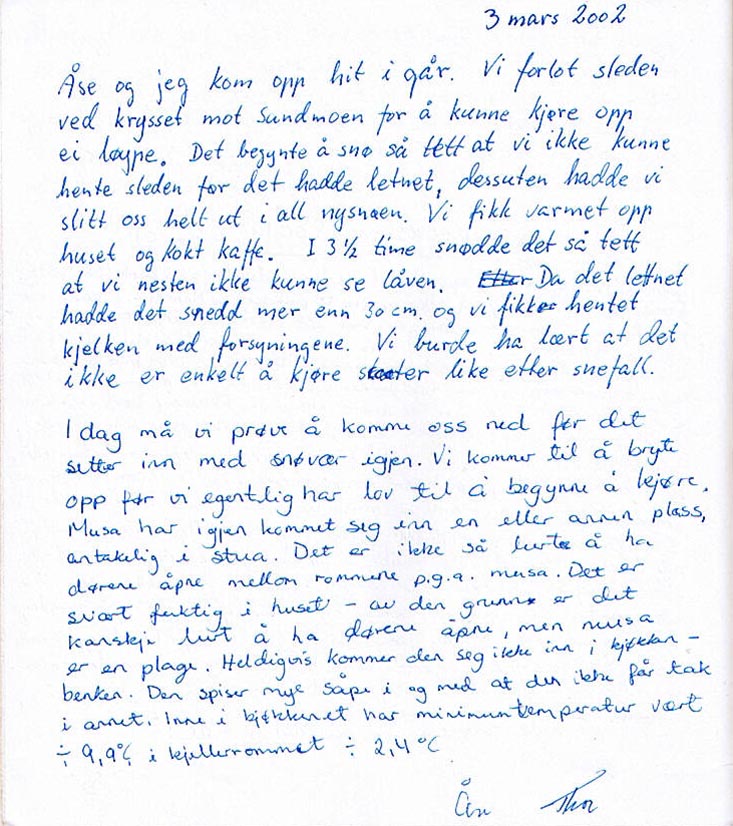 3 mars 2002
Åse og jeg kom opp hit i går. Vi forlot sleden
ved krysset mot Sundmoen for å kunne kjøre opp
ei løype. Det begynte å snø så tett at vi ikke kunne
hente sleden før det hadde letnet, dessuten hadde vi
slitt oss helt ut i all nysnøen. Vi fikk varmet opp
huset og kokt kaffe. I 3½ time snødde det så tett
at vi nesten ikke kunne se låven. Etter Da det lettnet
hadde det snødd mer enn 30 cm. og vi fikk hentet
kjelken med forsyningene. Vi burde ha lært at det
ikke er enkelt å kjøre scooter like etter snefall.
I dag må vi prøve å komme oss ned før det
setter inn med snøvær igjen. Vi kommer til å bryte
opp før vi egentlig har lov til å begynne å kjøre.
Musa har igjen kommet seg inn en eller annen plass,
antakelig i stua. Det er ikke så lurt å ha
dørene åpne mellom rommene p.g.a. musa. Det er
svært fuktig i huset – av den grunn er det
kanskje lurt å ha dørene åpne, men musa
er en plage. Heldigvis kommer den seg ikke inn i kjøkken–
benken. Den spiser mye såpe i og med at den ikke får tak
i annet. Inne i kjøkkenet har minimumtemperatur vært
÷ 9,9°C i kjellerrommet ÷ 2,4°C
Åse Thor